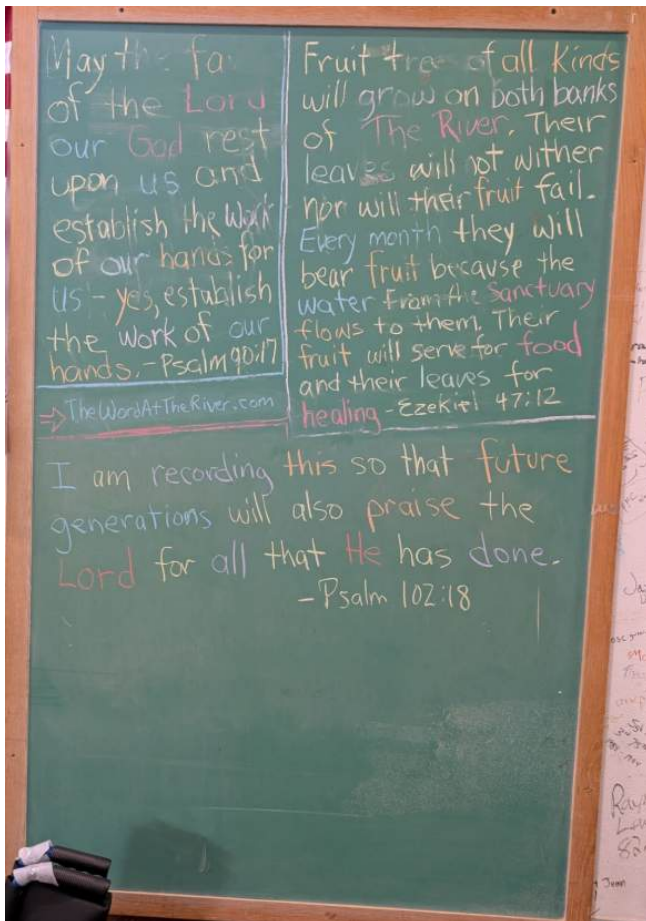 May the fa
of the Lord
our God rest
upon us and
establish the work
of our hands for
us - yes, establish
the work of our
hands. - Psalm 90:17
TheWordAtTheRiver.com
Fruit trees of all kinds
will grow on both banks
of The River. Their
leaves will not wither
nor will their fruit fail.
Every month they will
bear fruit because the
water from the Sanctuary
flows to them. Their
fruit will serve for food
and their leaves for
healing - Ezekiel 47:12
I am recording this so that future
generations will also praise the
Lord for all that He has done.
- Psalm 102:18